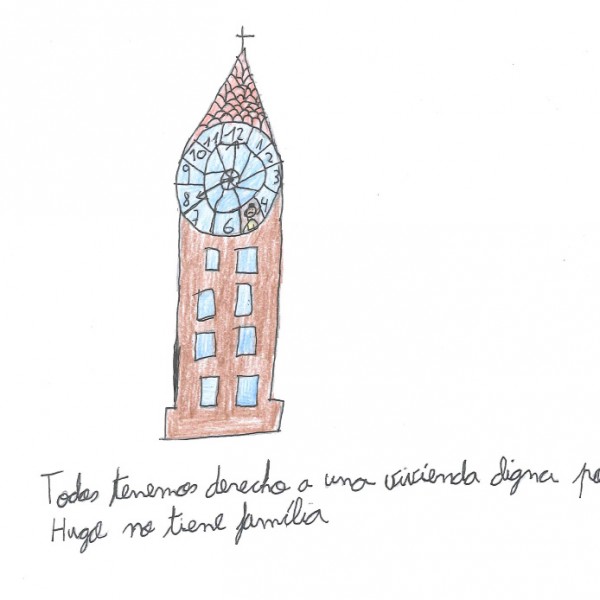 11 12 1
10 2
9 3
8 4
7 6
Todos tenemos derecho a una vivienda digna po
Hugo no tiene família